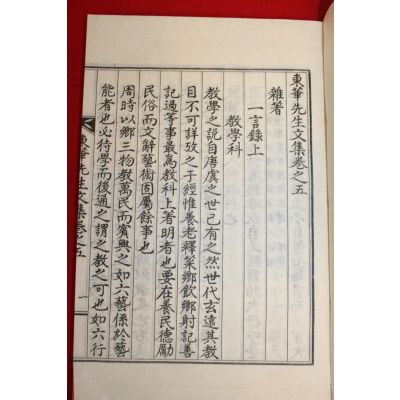 東華先生文集卷之五
雜著
一言錄上
教學科
教學之說自唐虞之世已有之然世代玄遠其教
目不可詳攷之于經惟養老釋菜鄉飮鄉射記善
記過等事最爲教科上著明者也要在養民德勵
民俗而文辭藝術固屬餘事也
周時以鄉三物教萬民而賓興之如六藝係於藝
能者也必待學而後通之謂之教之可也如六行
東華先生文集卷之五
一